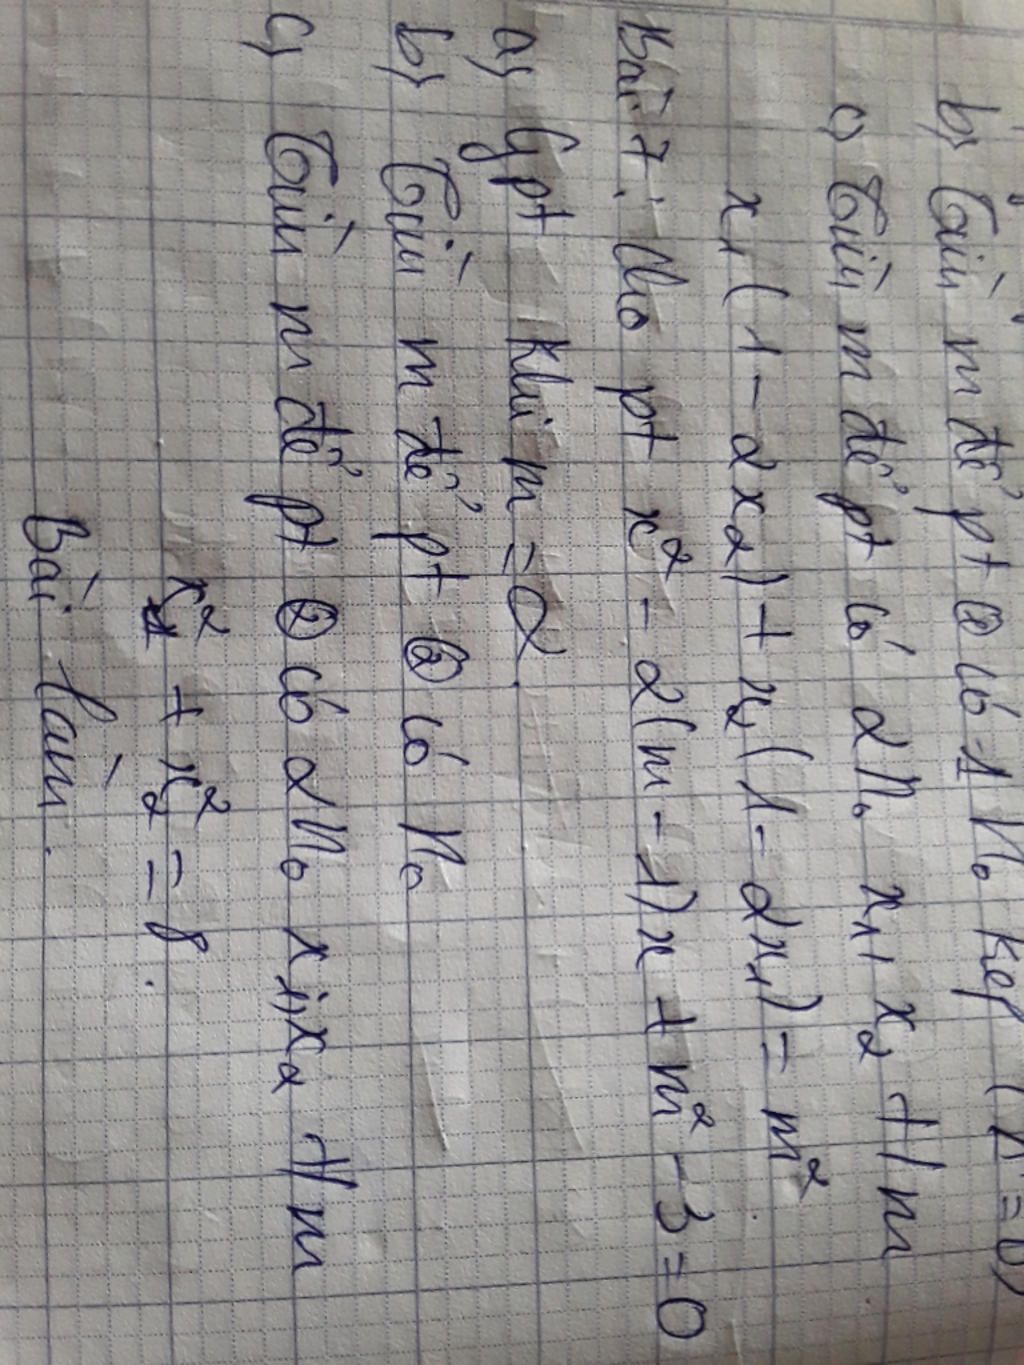 b) Tìm m để pt ② có 1 No kép (Δ' = 0)
c) Tìm m để pt có 2 No x₁, x₂ t/m
x₁(1 - 2x₂) + x₂(1 - 2x₁) = m²
Bài 7: Cho pt x² - 2(m - 1)x + m² - 3 = 0
a) Gpt khi m = 2.
b) Tìm m để pt ② có No
c) Tìm m để pt ② có 2 No x₁, x₂ t/m
x₁² + x₂² = 8.
Bài làm.